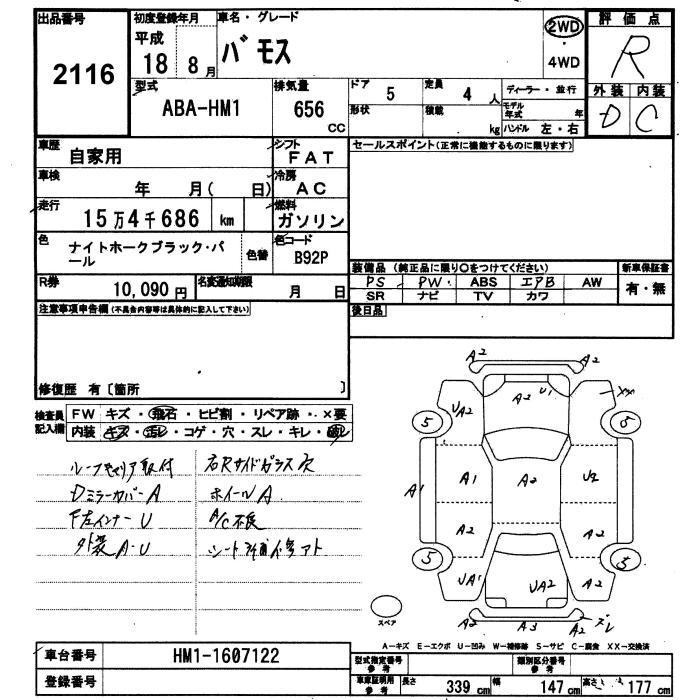 出品番号
2116
初度登録年月
平成
18 8月
車名・グレード
バモス
2WD
・
4WD
評価点
R
外装 内装
D C
型式
ABA-HM1
排気量
656
CC
ドア
5
定員
4 人
ディーラー・並行
形状
積載
kg
モデル年式 年
ハンドル 左・右
車歴
自家用
シフト
FAT
車検
年 月( 日)
冷房
AC
走行
15万4千686 km
燃料
ガソリン
色
ナイトホークブラック・パール
色替
色コード
B92P
R券
10,090円
名変通知期限
月 日
セールスポイント(正常に機能するものに限ります)
装備品 (純正品に限り○をつけてください)
PS PW ABS エアB AW
SR ナビ TV カワ
新車保証書
有・無
後日品
注意事項申告欄(不具合内容等は具体的に記入して下さい)
修復歴 有〔箇所 〕
検査員記入欄
FW キズ・飛石・ヒビ割・リペア跡・×要
内装 キズ・汚レ・コゲ・穴・スレ・キレ
ルーフキャリア取付
右Rサイドガラス欠
DミラーカバーA
ホイールA
F左インナーU
A/C不良
外装A・U
A2
A2
XX
UA2
A2
U1
5
5
A1
A1
A2
U2
A2
A2
5
5
UA1
UA2
A2
A2
A3
A2
ズレ
スペア
A−キズ E−エクボ U−凹み W−補修跡 S−サビ C−腐食 XX−交換済
車台番号
HM1-1607122
登録番号
型式指定番号
参考
類別区分番号
参考
車庫証明用
参考
長さ 339 cm 幅 147 cm 高さ 177 cm